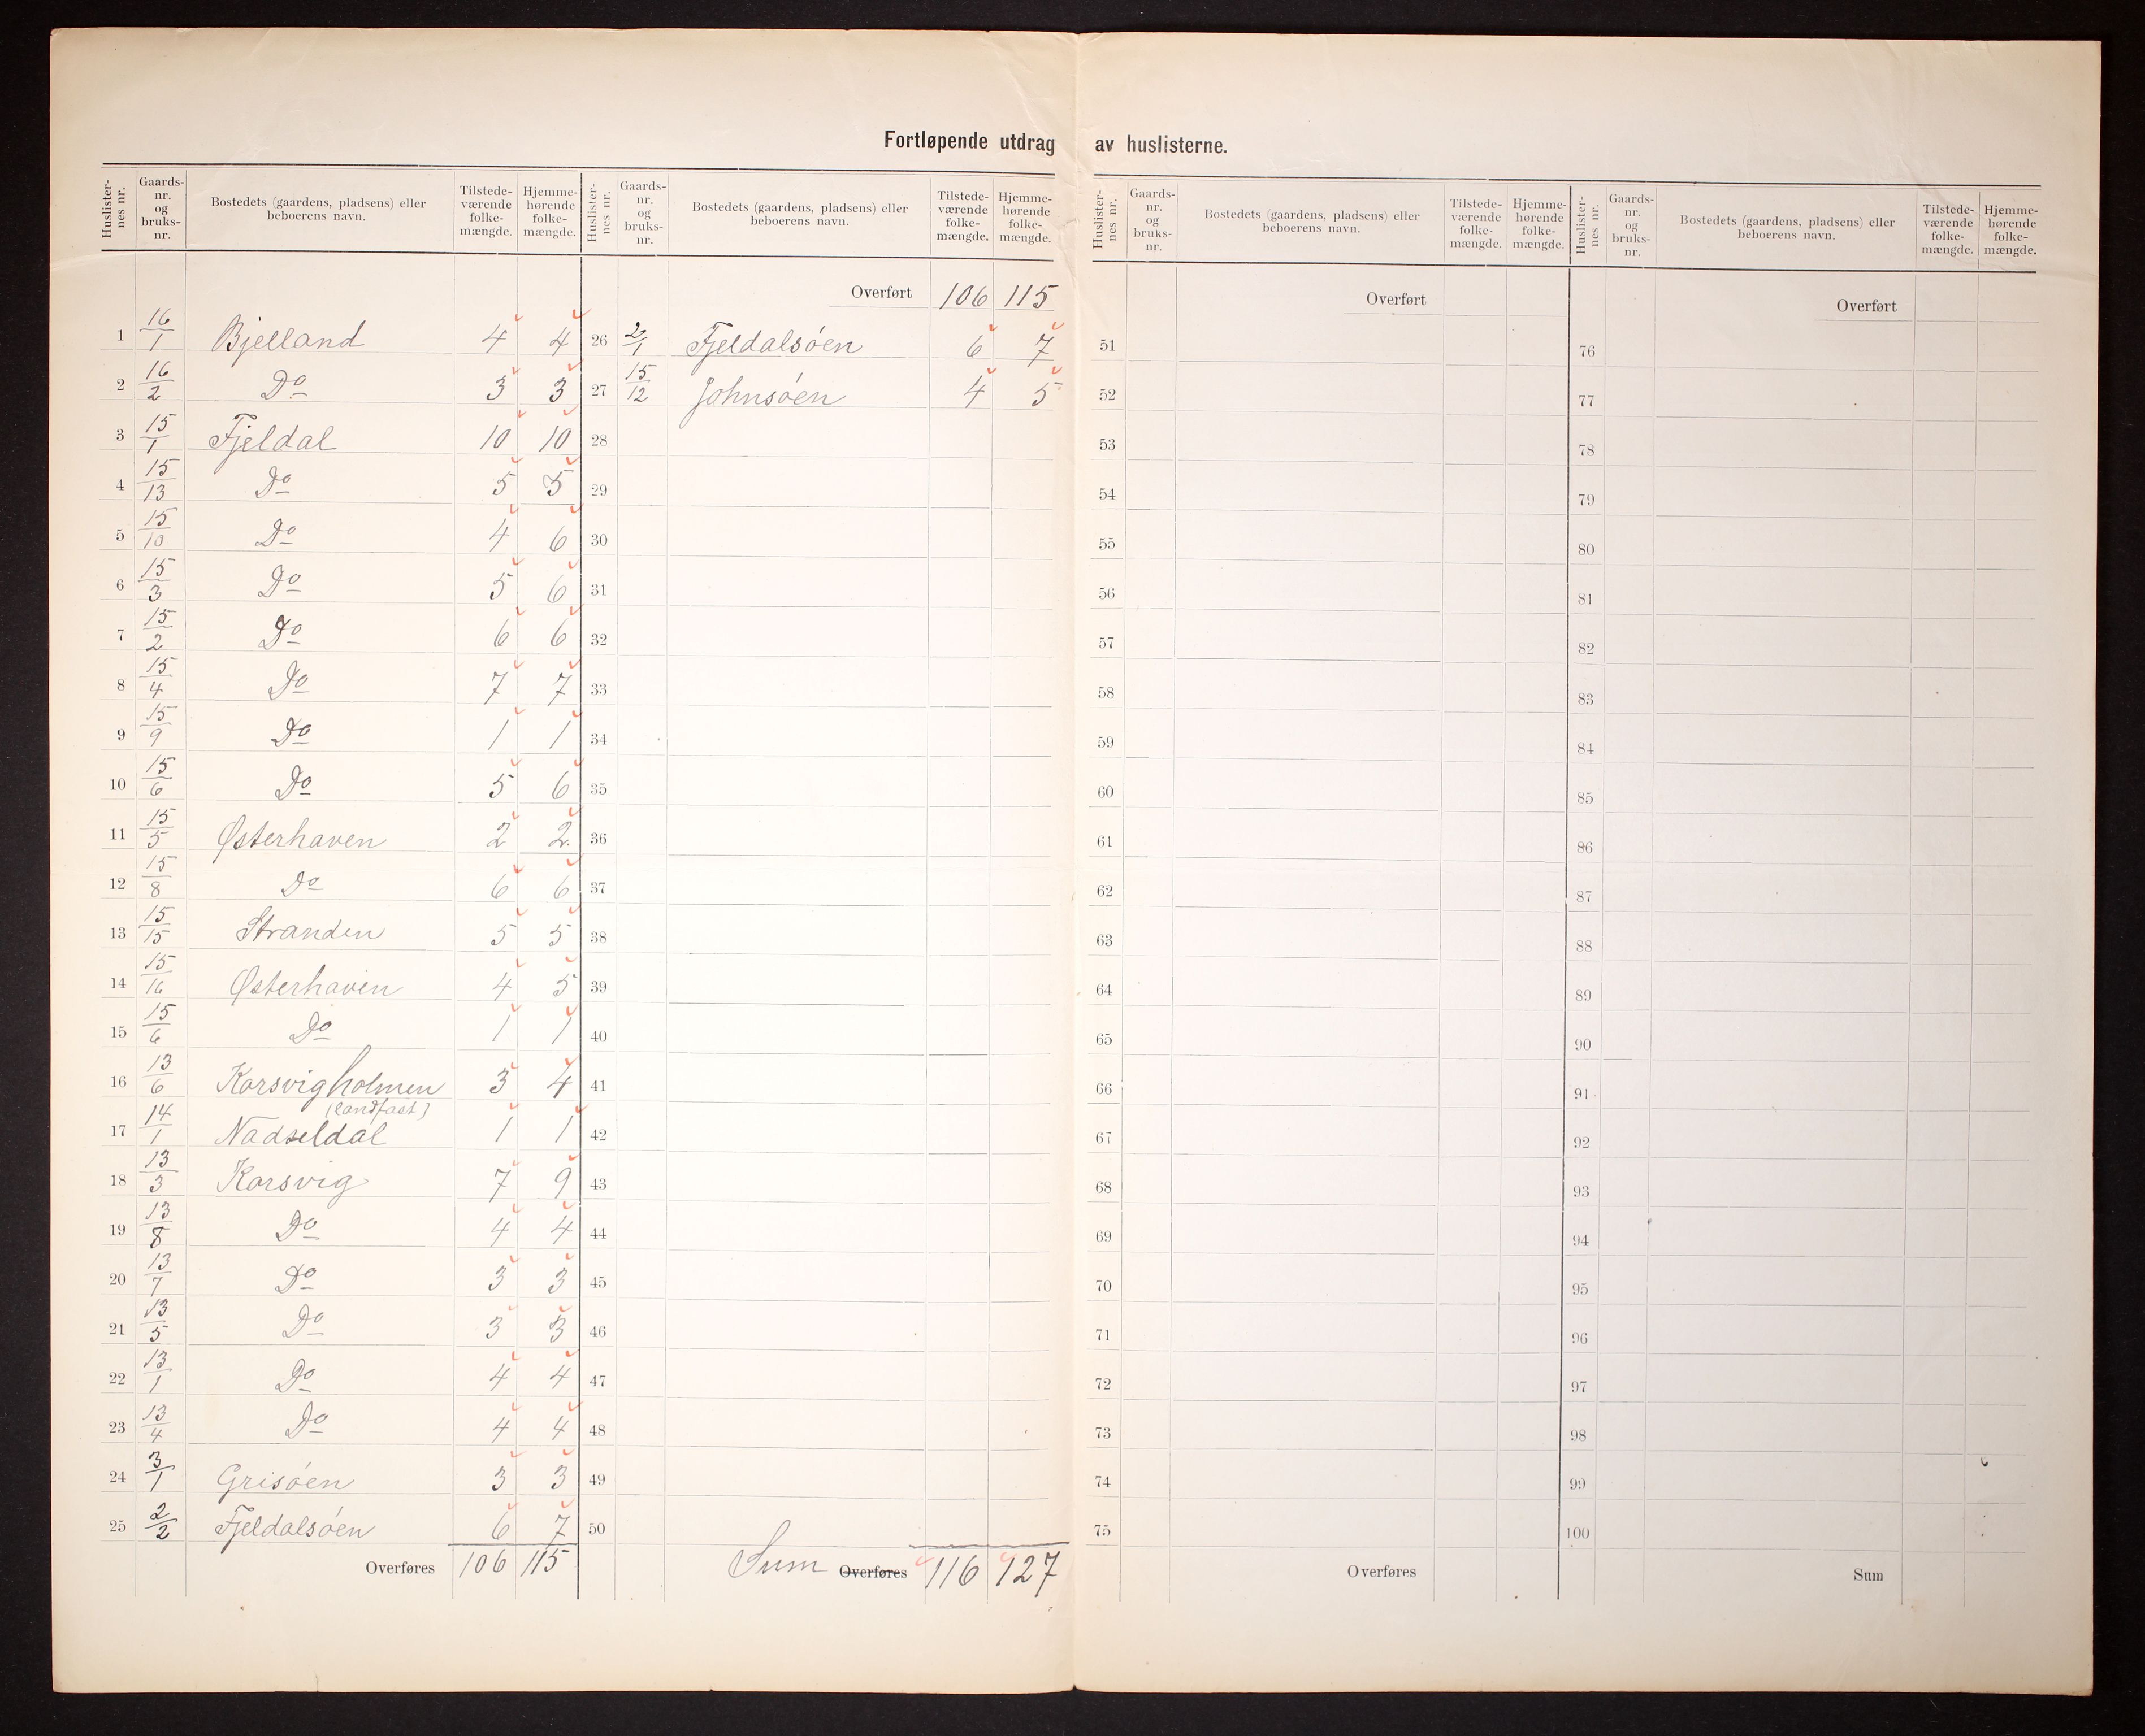 Fortløpende utdrag av huslisterne.
Huslisternes nr. | Gaards-nr. og bruks-nr. | Bostedets (gaardens, pladsens) eller beboerens navn. | Tilstede-værende folke-mængde. | Hjemme-hørende folke-mængde.
1 | 16/1 | Bjelland | 4 | 4
2 | 16/2 | Do | 3 | 3
3 | 15/1 | Fjeldal | 10 | 10
4 | 15/13 | Do | 5 | 5
5 | 15/10 | Do | 4 | 6
6 | 15/3 | Do | 5 | 6
7 | 15/2 | Do | 6 | 6
8 | 15/4 | Do | 7 | 7
9 | 15/9 | Do | 1 | 1
10 | 15/6 | Do | 5 | 6
11 | 15/5 | Østerhaven | 2 | 2
12 | 15/8 | Do | 6 | 6
13 | 15/15 | Stranden | 5 | 5
14 | 15/16 | Østerhaven | 4 | 5
15 | 15/6 | Do | 1 | 1
16 | 13/6 | Korsvigholmen | 3 | 4
(landfast)
17 | 14/1 | Nadseldal | 1 | 1
18 | 13/3 | Korsvig | 7 | 9
19 | 13/8 | Do | 4 | 4
20 | 13/7 | Do | 3 | 3
21 | 13/5 | Do | 3 | 3
22 | 13/1 | Do | 4 | 4
23 | 13/4 | Do | 4 | 4
24 | 3/1 | Grisöen | 3 | 3
25 | 2/2 | Fjeldalsöen | 6 | 7
Overføres | 106 | 115
Huslisternes nr. | Gaards-nr. og bruks-nr. | Bostedets (gaardens, pladsens) eller beboerens navn. | Tilstede-værende folke-mængde. | Hjemme-hørende folke-mængde.
Overført | 106 | 115
26 | 2/1 | Fjeldalsöen | 6 | 7
27 | 15/12 | Johnsöen | 4 | 5
28
29
30
31
32
33
34
35
36
37
38
39
40
41
42
43
44
45
46
47
48
49
50
Sum Overføres | 116 | 127
Huslisternes nr. | Gaards-nr. og bruks-nr. | Bostedets (gaardens, pladsens) eller beboerens navn. | Tilstede-værende folke-mængde. | Hjemme-hørende folke-mængde.
Overført
51
52
53
54
55
56
57
58
59
60
61
62
63
64
65
66
67
68
69
70
71
72
73
74
75
Overføres
Huslisternes nr. | Gaards-nr. og bruks-nr. | Bostedets (gaardens, pladsens) eller beboerens navn. | Tilstede-værende folke-mængde. | Hjemme-hørende folke-mængde.
Overført
76
77
78
79
80
81
82
83
84
85
86
87
88
89
90
91
92
93
94
95
96
97
98
99
100
Sum